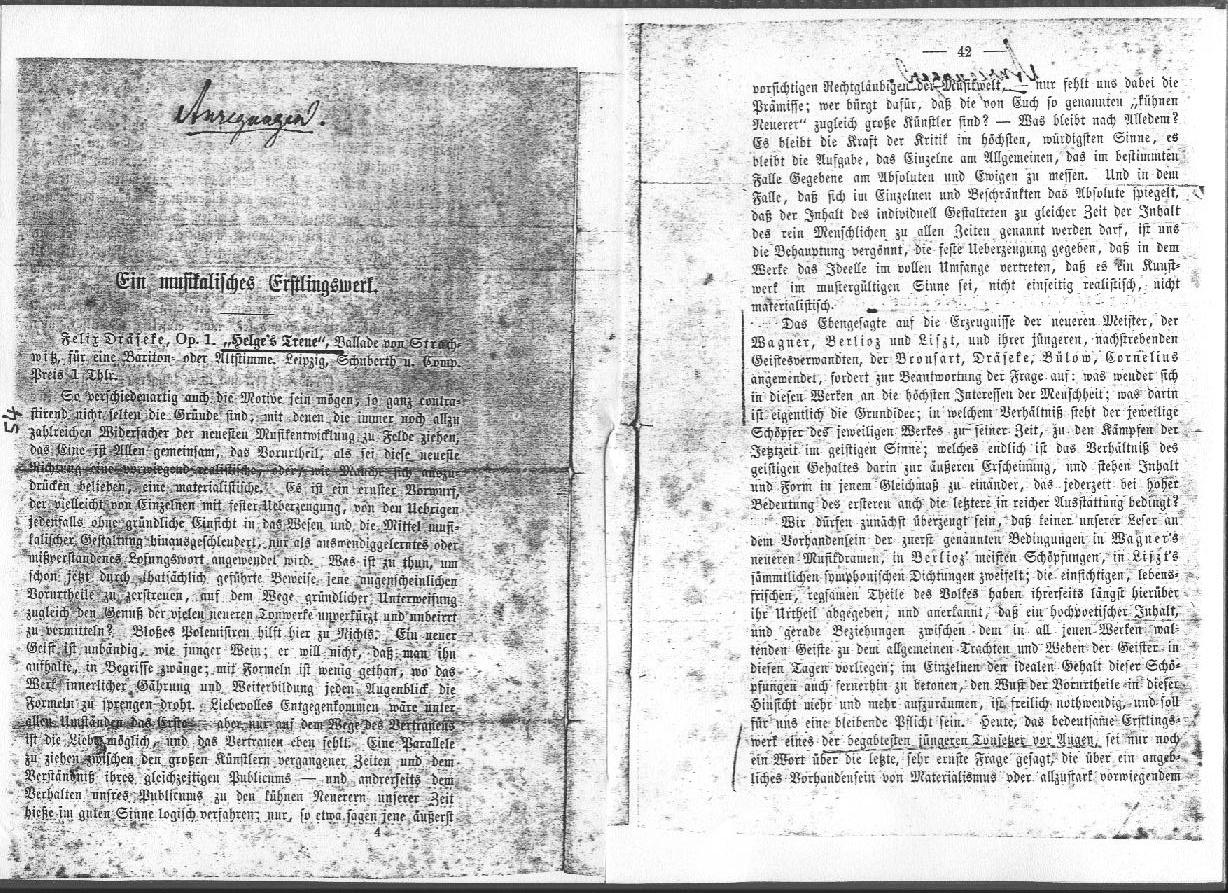 Anregungen.
Ein musikalisches Erstlingswerk.
Felix Dräseke, Op. 1. „Helge's Treue“, Ballade von Strach-
witz, für eine Bariton- oder Altstimme. Leipzig, Schuberth u. Comp.
Preis 1 Thlr.
54
So verschiedenartig auch die Motive sein mögen, so ganz contra-
stirend nicht selten die Gründe sind, mit denen die immer noch allzu
zahlreichen Widersacher der neuesten Musikentwicklung zu Felde ziehen,
das Eine ist Allen gemeinsam, das Vorurtheil, als sei diese neueste
Richtung eine vorwiegend realistische, oder, wie Manche sich auszu-
drücken belieben, eine materialistische. Es ist ein ernster Vorwurf,
der vielleicht von Einzelnen mit fester Ueberzeugung, von den Uebrigen
jedenfalls ohne gründliche Einsicht in das Wesen und die Mittel musi-
kalischer Gestaltung hinausgeschleudert, nur als auswendiggelerntes oder
mißverstandenes Losungswort angewendet wird. Was ist zu thun, um
schon jetzt durch thatsächlich geführte Beweise jene augenscheinlichen
Vorurtheile zu zerstreuen, auf dem Wege gründlicher Unterweisung
zugleich den Genuß der vielen neueren Tonwerke unverkürzt und unbeirrt
zu vermitteln? Bloßes Polemisiren hilft hier zu Nichts. Ein neuer
Geist ist unbändig, wie junger Wein; er will nicht, daß man ihn
aufhalte, in Begriffe zwänge; mit Formeln ist wenig gethan, wo das
Werk innerlicher Gährung und Weiterbildung jeden Augenblick die
Formeln zu sprengen droht. Liebevolles Entgegenkommen wäre unter
allen Umständen das Erste — aber nur auf dem Wege des Vertrauens
ist die Liebe möglich, und das Vertrauen eben fehlt. Eine Parallele
zu ziehen zwischen den großen Künstlern vergangener Zeiten und dem
Verständniß ihres gleichzeitigen Publicums — und andrerseits dem
Verhalten unsres Publicums zu den kühnen Neuerern unserer Zeit
hieße im guten Sinne logisch verfahren; nur, so etwa sagen jene äußerst
4
— 42 —
Anregungen.
vorsichtigen Rechtgläubigen der Musikwelt, — nur fehlt uns dabei die
Prämisse; wer bürgt dafür, daß die von Euch so genannten „kühnen
Neuerer“ zugleich große Künstler sind? — Was bleibt nach Alledem?
Es bleibt die Kraft der Kritik im höchsten, würdigsten Sinne, es
bleibt die Aufgabe, das Einzelne am Allgemeinen, das im bestimmten
Falle Gegebene am Absoluten und Ewigen zu messen. Und in dem
Falle, daß sich im Einzelnen und Beschränkten das Absolute spiegelt,
daß der Inhalt des individuell Gestalteten zu gleicher Zeit der Inhalt
des rein Menschlichen zu allen Zeiten genannt werden darf, ist uns
die Behauptung vergönnt, die feste Ueberzeugung gegeben, daß in dem
Werke das Ideelle im vollen Umfange vertreten, daß es ein Kunst-
werk im mustergültigen Sinne sei, nicht einseitig realistisch, nicht
materialistisch.
Das Ebengesagte auf die Erzeugnisse der neueren Meister, der
Wagner, Berlioz und Liszt, und ihrer jüngeren, nachstrebenden
Geistesverwandten, der Bronsart, Dräseke, Bülow, Cornelius
angewendet, fordert zur Beantwortung der Frage auf: was wendet sich
in diesen Werken an die höchsten Interessen der Menschheit; was darin
ist eigentlich die Grundidee; in welchem Verhältniß steht der jeweilige
Schöpfer des jeweiligen Werkes zu seiner Zeit, zu den Kämpfen der
Jetztzeit im geistigen Sinne; welches endlich ist das Verhältniß des
geistigen Gehaltes darin zur äußeren Erscheinung, und stehen Inhalt
und Form in jenem Gleichmaß zu einander, das jederzeit bei hoher
Bedeutung des ersteren auch die letztere in reicher Ausstattung bedingt?
Wir dürfen zunächst überzeugt sein, daß keiner unserer Leser an
dem Vorhandensein der zuerst genannten Bedingungen in Wagner's
neueren Musikdramen, in Berlioz' meisten Schöpfungen, in Liszt's
sämmtlichen symphonischen Dichtungen zweifelt; die einsichtigen, lebens-
frischen, regsamen Theile des Volkes haben ihrerseits längst hierüber
ihr Urtheil abgegeben, und anerkannt, daß ein hochpoetischer Inhalt,
und gerade Beziehungen zwischen dem in all jenen Werken wal-
tenden Geiste zu dem allgemeinen Trachten und Weben der Geister in
diesen Tagen vorliegen; im Einzelnen den idealen Gehalt dieser Schö-
pfungen auch fernerhin zu betonen, den Wust der Vorurtheile in dieser
Hinsicht mehr und mehr aufzuräumen, ist freilich nothwendig, und soll
für uns eine bleibende Pflicht sein. Heute, das bedeutsame Erstlings-
werk eines der begabtesten jüngeren Tonsetzer vor Augen, sei nur noch
ein Wort über die letzte, sehr ernste Frage gesagt, die über ein angeb-
liches Vorhandensein von Materialismus oder allzustark vorwiegendem